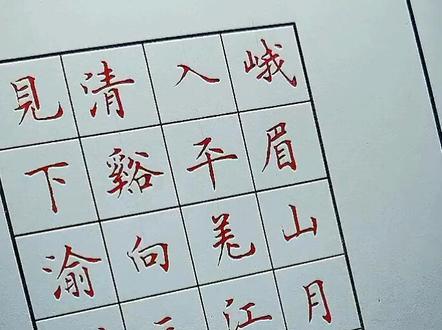 峨眉山月
入平羌江
清谿向
見下渝